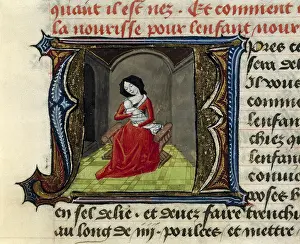 quant il est nez. Et comment
la nourisse pour lenfant nour
Apres ce
sera de
Il vous
comme
lenfan
chiez que
lenfant
conuie
poses
en sel delie. et deuez faire trench
au long de .iiii. poulces. et mettre